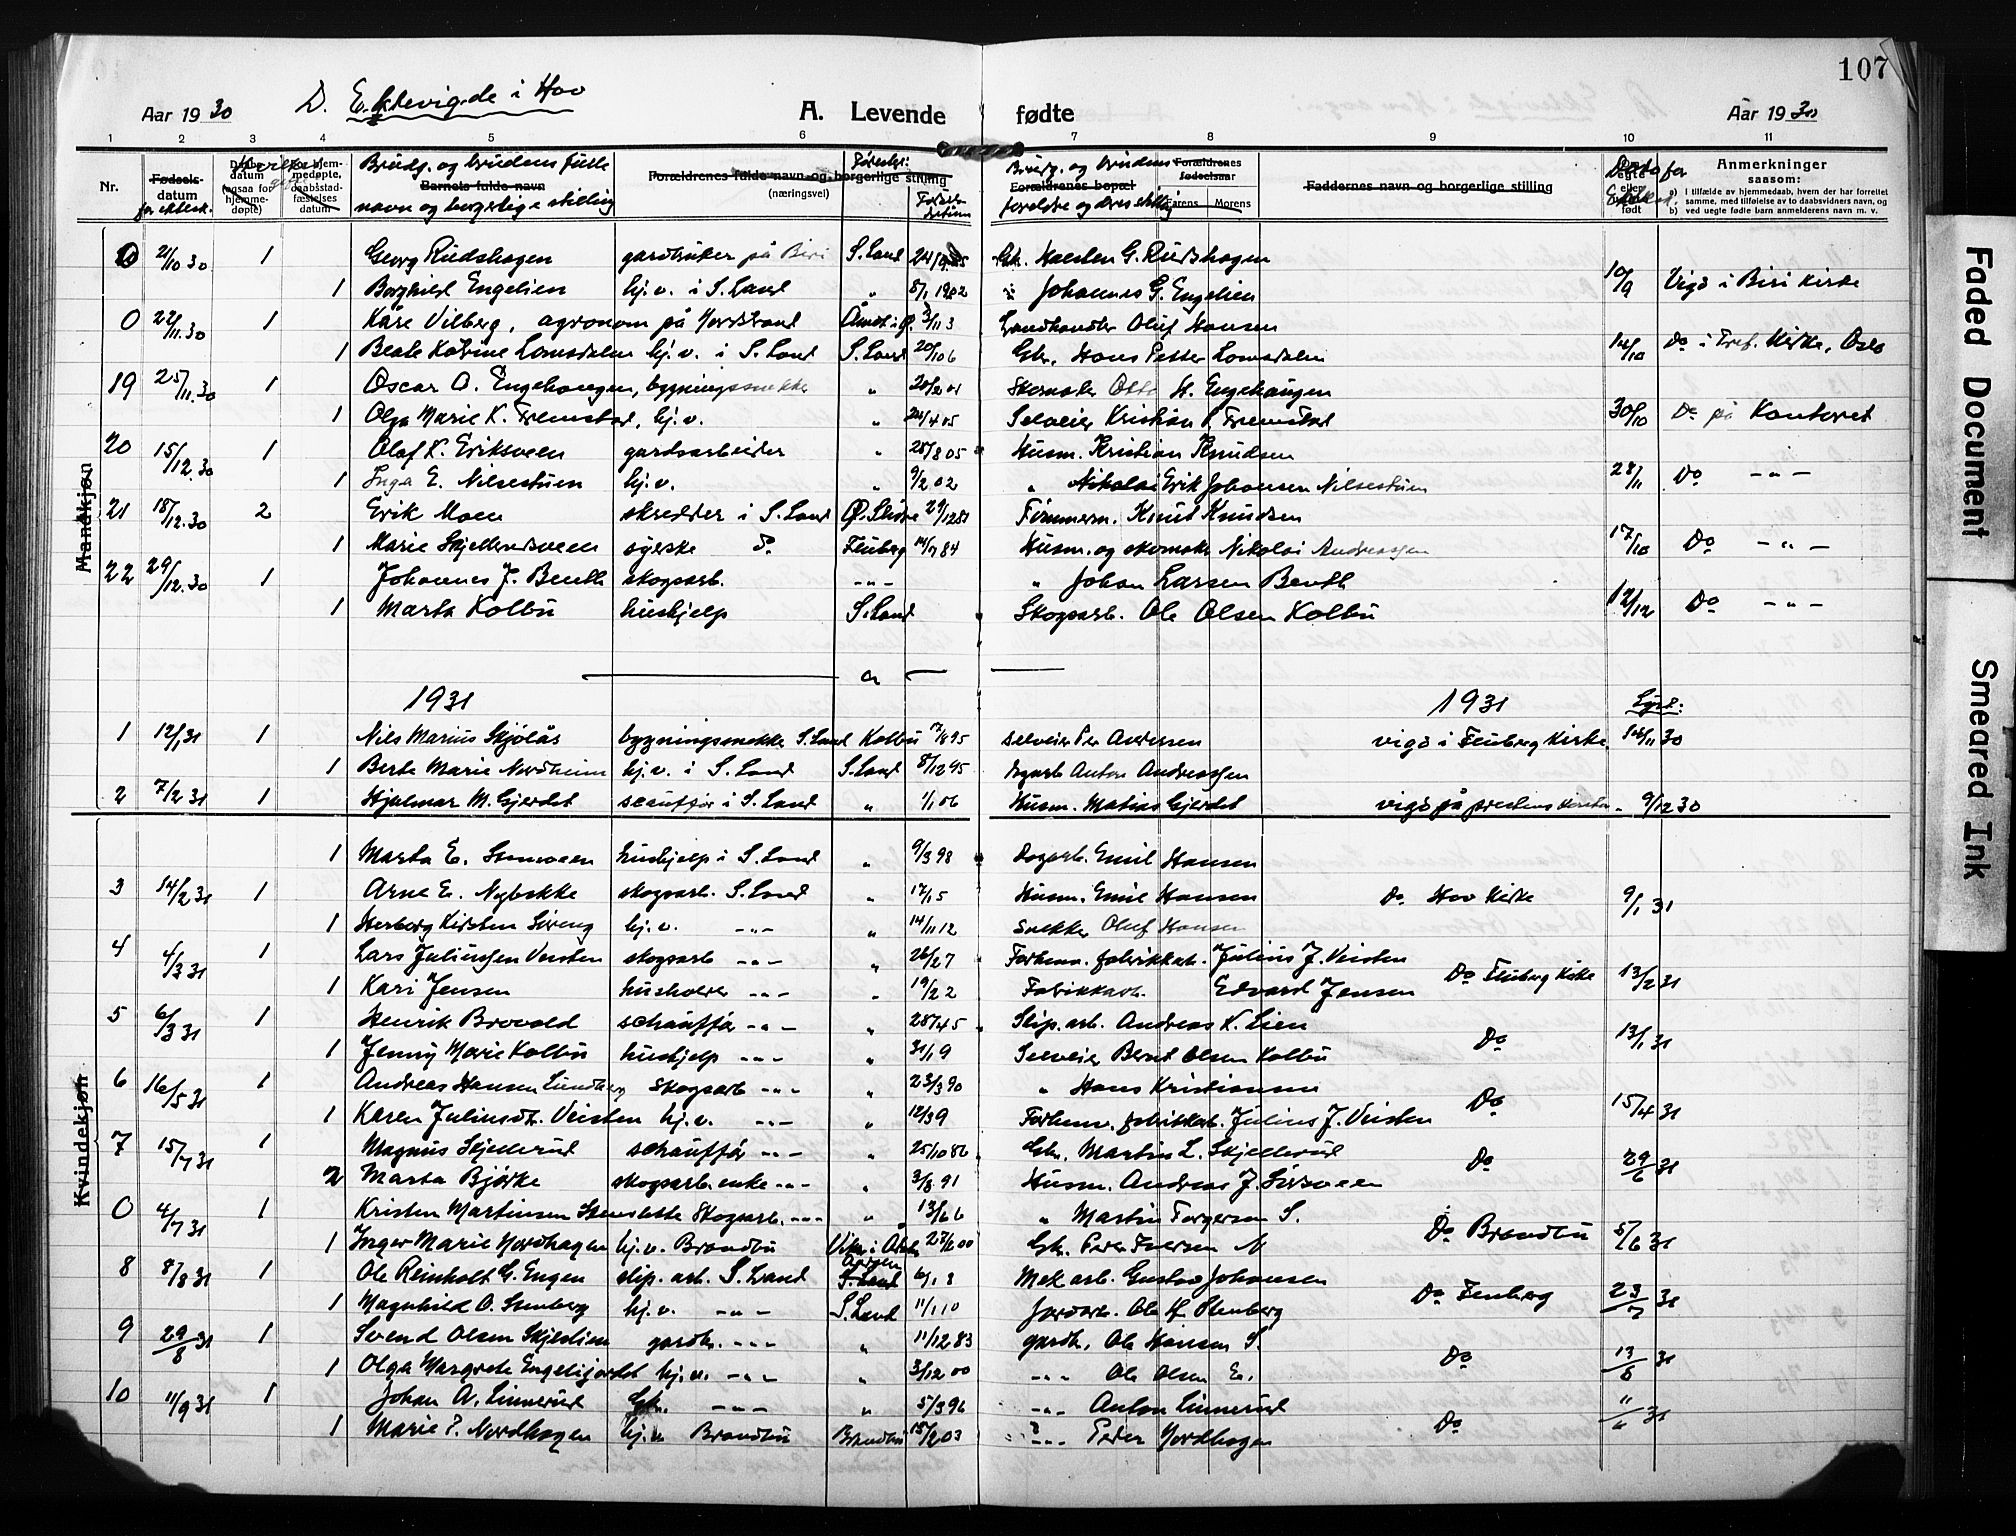 107
Aar 1930 D. Ektevigde i Hov A. Levende fødte Aar 1930
1 2 3 4 5 6 7 8 9 10 11
Nr. Fødsels-datum for ektesk. Daabs-datum (ogsaa for hjemme-døpte) For hjem-medøpte, daabsstad-fæstelses datum Brudg. og brudens fulle Barnets fulde navn navn og borgerlige stilling Forældrenes fulde navn og borgerlige stilling (næringsvei) Brudg. og brudens Forældrenes bopæl foreldre og deres stilling Forældrenes fødselsaar Farens Morens Faddernes navn og borgerlige stilling Dato for Anmerkninger saasom:
a) I tilfælde av hjemmedaab, hvem der har forrettet samme, med tilføielse av to daabsvidners navn, og
b) ved uegte fødte barn anmelderens navn m. v.
0 21/10 30 1 Georg Rudshagen gardbruker på Biri S. Land Gbr. Karsten G. Rudshagen
1 Borghild Engelien hj.v. i S. Land " 5/1 1902 " Johannes G. Engelien 10/9 Vigd i Biri Kirke
0 22/11.30 1 Kåre Vilberg, agronom på 3/11 3 Landhandler Oluf Hansen
1 Beate Katrine Lomsdalen hj.v. i S. Land S. Land 20/10 6 Gbr. Hans Petter Lomsdalen Do i Kirke, Oslo
19 25/11.30 1 Oscar O. Engehaugen, bygningssnekker " Skomaker Otto H. Engehaugen
1 Olga Marie K. Fremstad, hj.v. " 24/4 05 Selveier Kristian P. Fremstad 30/10 Do på Kontoret
20 15/12.30 1 Olaf K. Eriksveen gardsarbeider " 25/8 05 Husm. Kristian Knudsen
1 Inga E. Nilsestuen hj.v. " 9/2.02 " Nikolai Erik Johansen Nilsestuen 28/11 Do - " -
21 18/12.30 2 Erik Moen skredder i S. Land Ø. Slidre Tømmerm. Knut Knudsen
1 Marie Skjellerudsveen syerske do Fluberg 14/7 84 Husm. og skomaker Nikolai Andreassen 17/10 Do - " -
22 29/12.30 1 Johannes J. Benth skogsarb. - " - " Johan Larsen Benth
1 Marta Kolbu hushjelp S. Land Skogsarb. Ole Olsen Kolbu 12/12 Do - " -
1931 1931 Lyst:
1 12/1 31 1 Nils Marius Skjølås bygningssnekker S. Land Kolbu selveier Per Andersen vigd i Fluberg Kirke
1 Berte Marie Nordheim hj.v. i S. Land S. Land 8/12 95 Anton Andreassen
2 7/2 31 1 Hjalmar M. Gjerdet i S. Land " 1/1 06 Husm. Matias Gjerdet vigd på prestens Kontor 9/12 30
1 Marta E. hushjelp i S. Land " 9/3 98 Dagarb. Emil Hansen
3 14/2 31 1 Arne E. Nybakke skogsarb. S. Land " Husm. Emil Hansen Do Hov Kirke 9/1 31
1 Herborg Kirsten hj.v. - " - " 14/11 12 Snekker Oluf Hansen
4 4/3 31 1 Lars Juliussen Veisten skogsarb - " - " Forhenv. fabrikkarb. Julius J. Veisten
1 Kari Jensen - " - " Fabrikkarb. Edvard Jensen Do Fluberg Kirke 13/2 31
5 6/3 31 1 Henrik Brovold schauffør - " - " Slip. arb. Andreas K. Lien
1 Jenny Marie Kolbu hushjelp - " - " 31/1 9 Selveier Bernt Olsen Kolbu Do 13/1 31
6 16/5 31 1 Andreas Hansen Lundberg Skogsarb - " - " 23/3 90 " Hans Kristiansen
1 Karen Juliusdt. Veisten hj.v. - " - " 12/3 9 Forhenv. fabrikkarb. Julius J. Veisten Do 15/4 31
7 15/7 31 1 Magnus Skjellerud schauffør - " - " 25/10 86 Gbr. Martin L. Skjellerud
2 Marta Bjørke skogsarb.enke - " - " 3/8 91 Husm. Andreas J. Do 29/6 31
0 4/7 31 1 Kristen Martinsen Skogsarb. - " - " 13/6 6 " Martin Torgersen S.
1 Inger Marie Nordhagen hj.v. Brandbu Gbr. Peder Iversen N Do Brandbu 5/6 31
8 8/8 31 1 Ole Reinholt G. Engen slip. arb. S. Land S. Land 6/1 8 Mek arb. Gustav Johansen
1 Magnhild O. Stenberg hj.v. - " - S. Land 11/1 10 Jordarb. Ole H. Stenberg Do Fluberg 23/7 31
9 29/8 31 1 Svend Olsen Skjeslien gardbr. - " - " 11/12 83 gardb. Ole Hansen S.
1 Olga Margrete Engelijordet hj.v. - " - " 3/12 00 - " - Ole Olsen E. Do 13/6 31
10 11/9 31 1 Johan A. Linnerud Gbr. - " - " 5/3 96 - " - Anton Linnerud
1 Marie P. Nordhagen hj.v Brandbu Brandbu 15/2 03 - " - Peder Nordhagen Do 11/6 31
Mandkjøn
Kvindekjøn
Faded Document
Smeared Ink